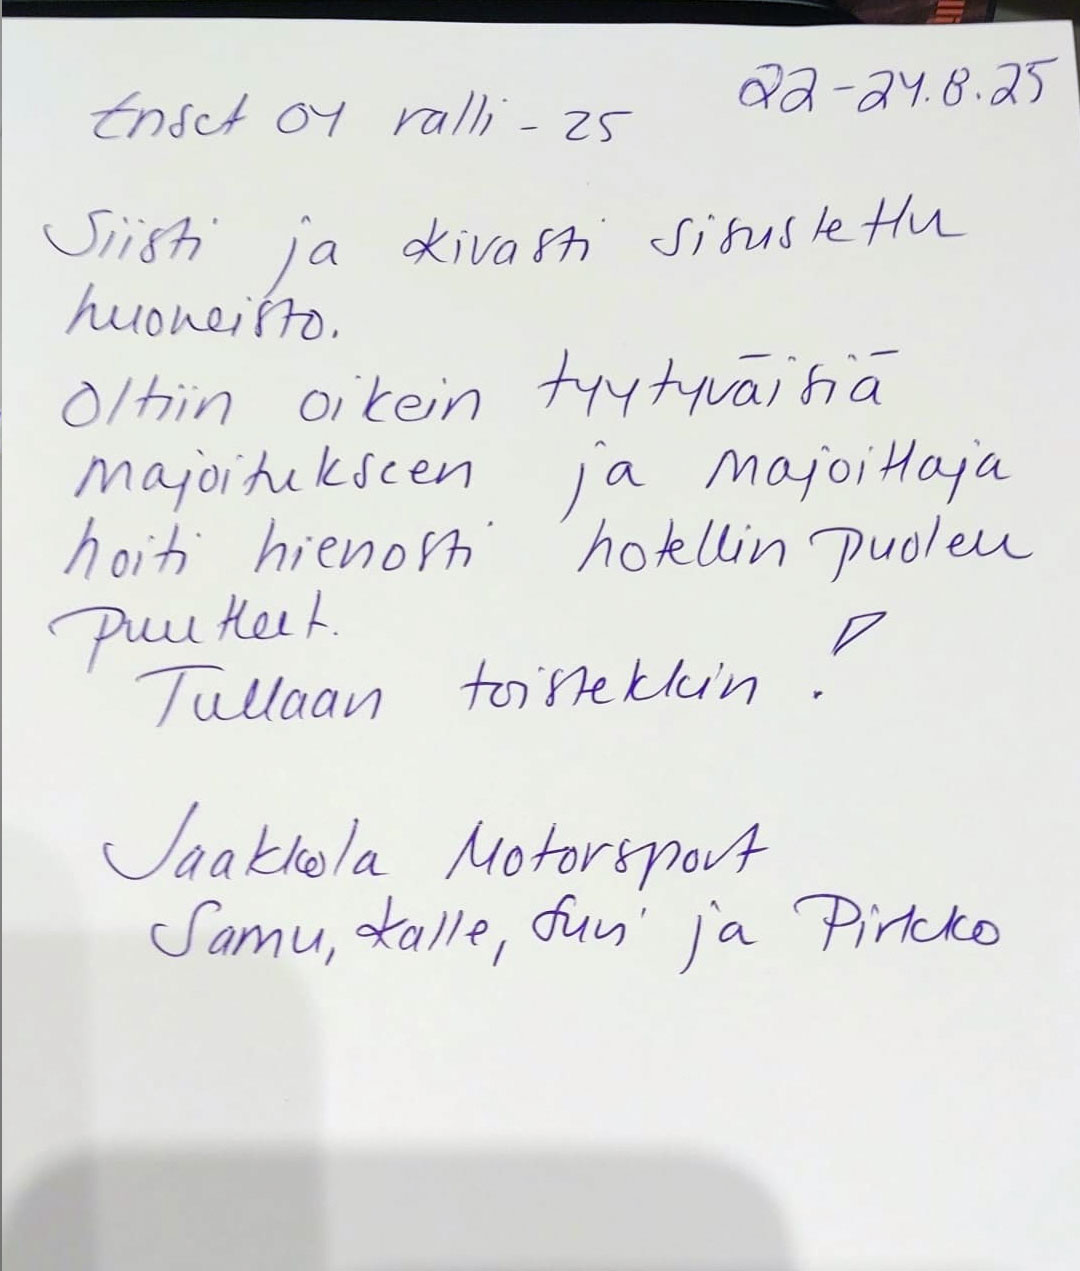 Enset Oy ralli - 25 22-24.8.25
Siisti ja kivasti sisustettu
huoneisto.
Oltiin oikein tyytyväisiä
majoitukseen ja majoittaja
hoiti hienosti hotellin puolen
puutteet.
Tullaan toistekkin!
Jaakkola Motorsport
Samu, Kalle, ja Pirkko